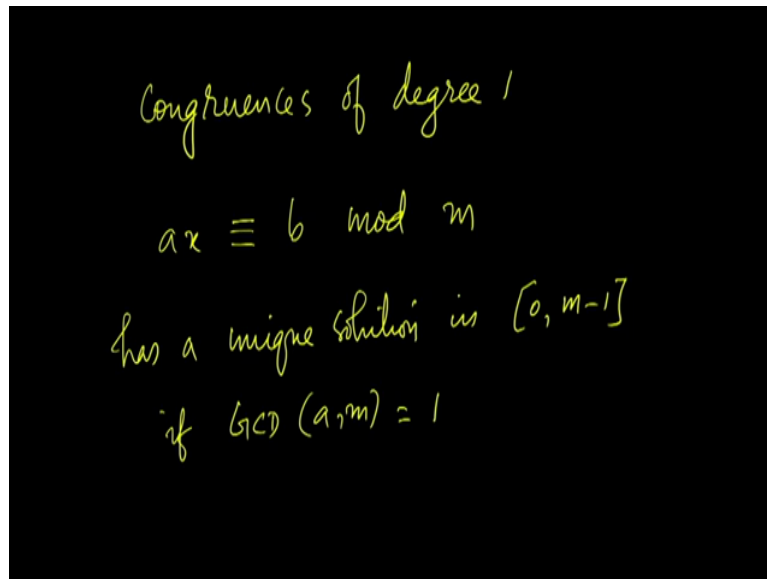 Congruences of degree 1
ax ≡ b mod m
has a unique solution in [0, m-1]
if GCD (a, m) = 1